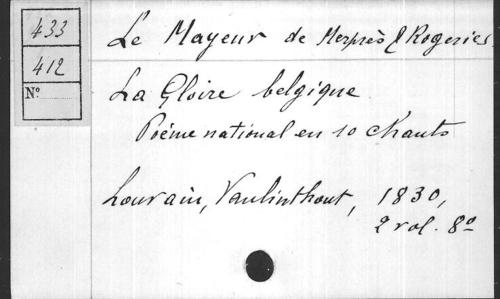 433
412
N°
Le Mayeur de Merprès & Rogeries
La Gloire belgique
Poème national en 10 chants
Louvain, Vanlinthout, 1830,
2 vol. 8°